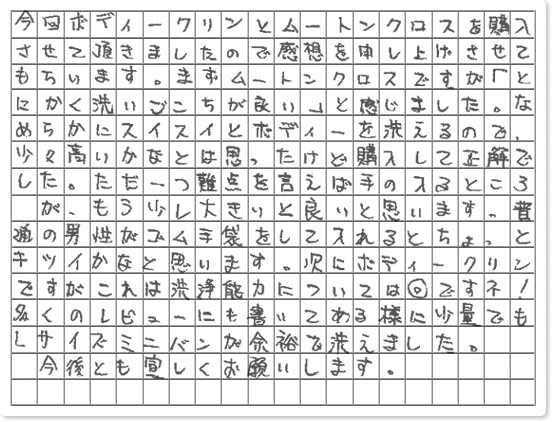 今回ボディークリンとムートンクロスを購入
させて頂きましたので感想を申し上げさせて
もらいます。まずムートンクロスですが「と
にかく洗いごこちが良い」と感じました。な
めらかにスイスイとボディーを洗えるので、
少々高いかなとは思ったけど購入して正解で
した。ただ一つ難点を言えば手の入るところ
が、もう少し大きいと良いと思います。普
通の男性がゴム手袋をして入れるとちょっと
キツイかなと思います。次にボディークリン
ですがこれは洗浄能力については◎ですネ!
多くのレビューにも書いてある様に少量でも
Lサイズミニバンが余裕で洗えました。
今後とも宜しくお願いします。